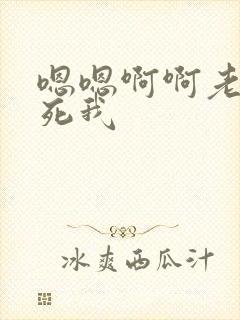 嗯嗯啊啊老
死我
冰爽西瓜汁